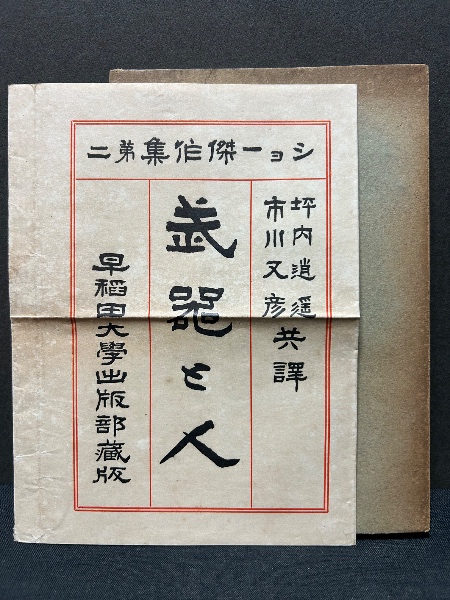 ショー傑作集第二
坪内逍遥
市川又彦
共譯
武器と人
早稲田大學出版部藏版